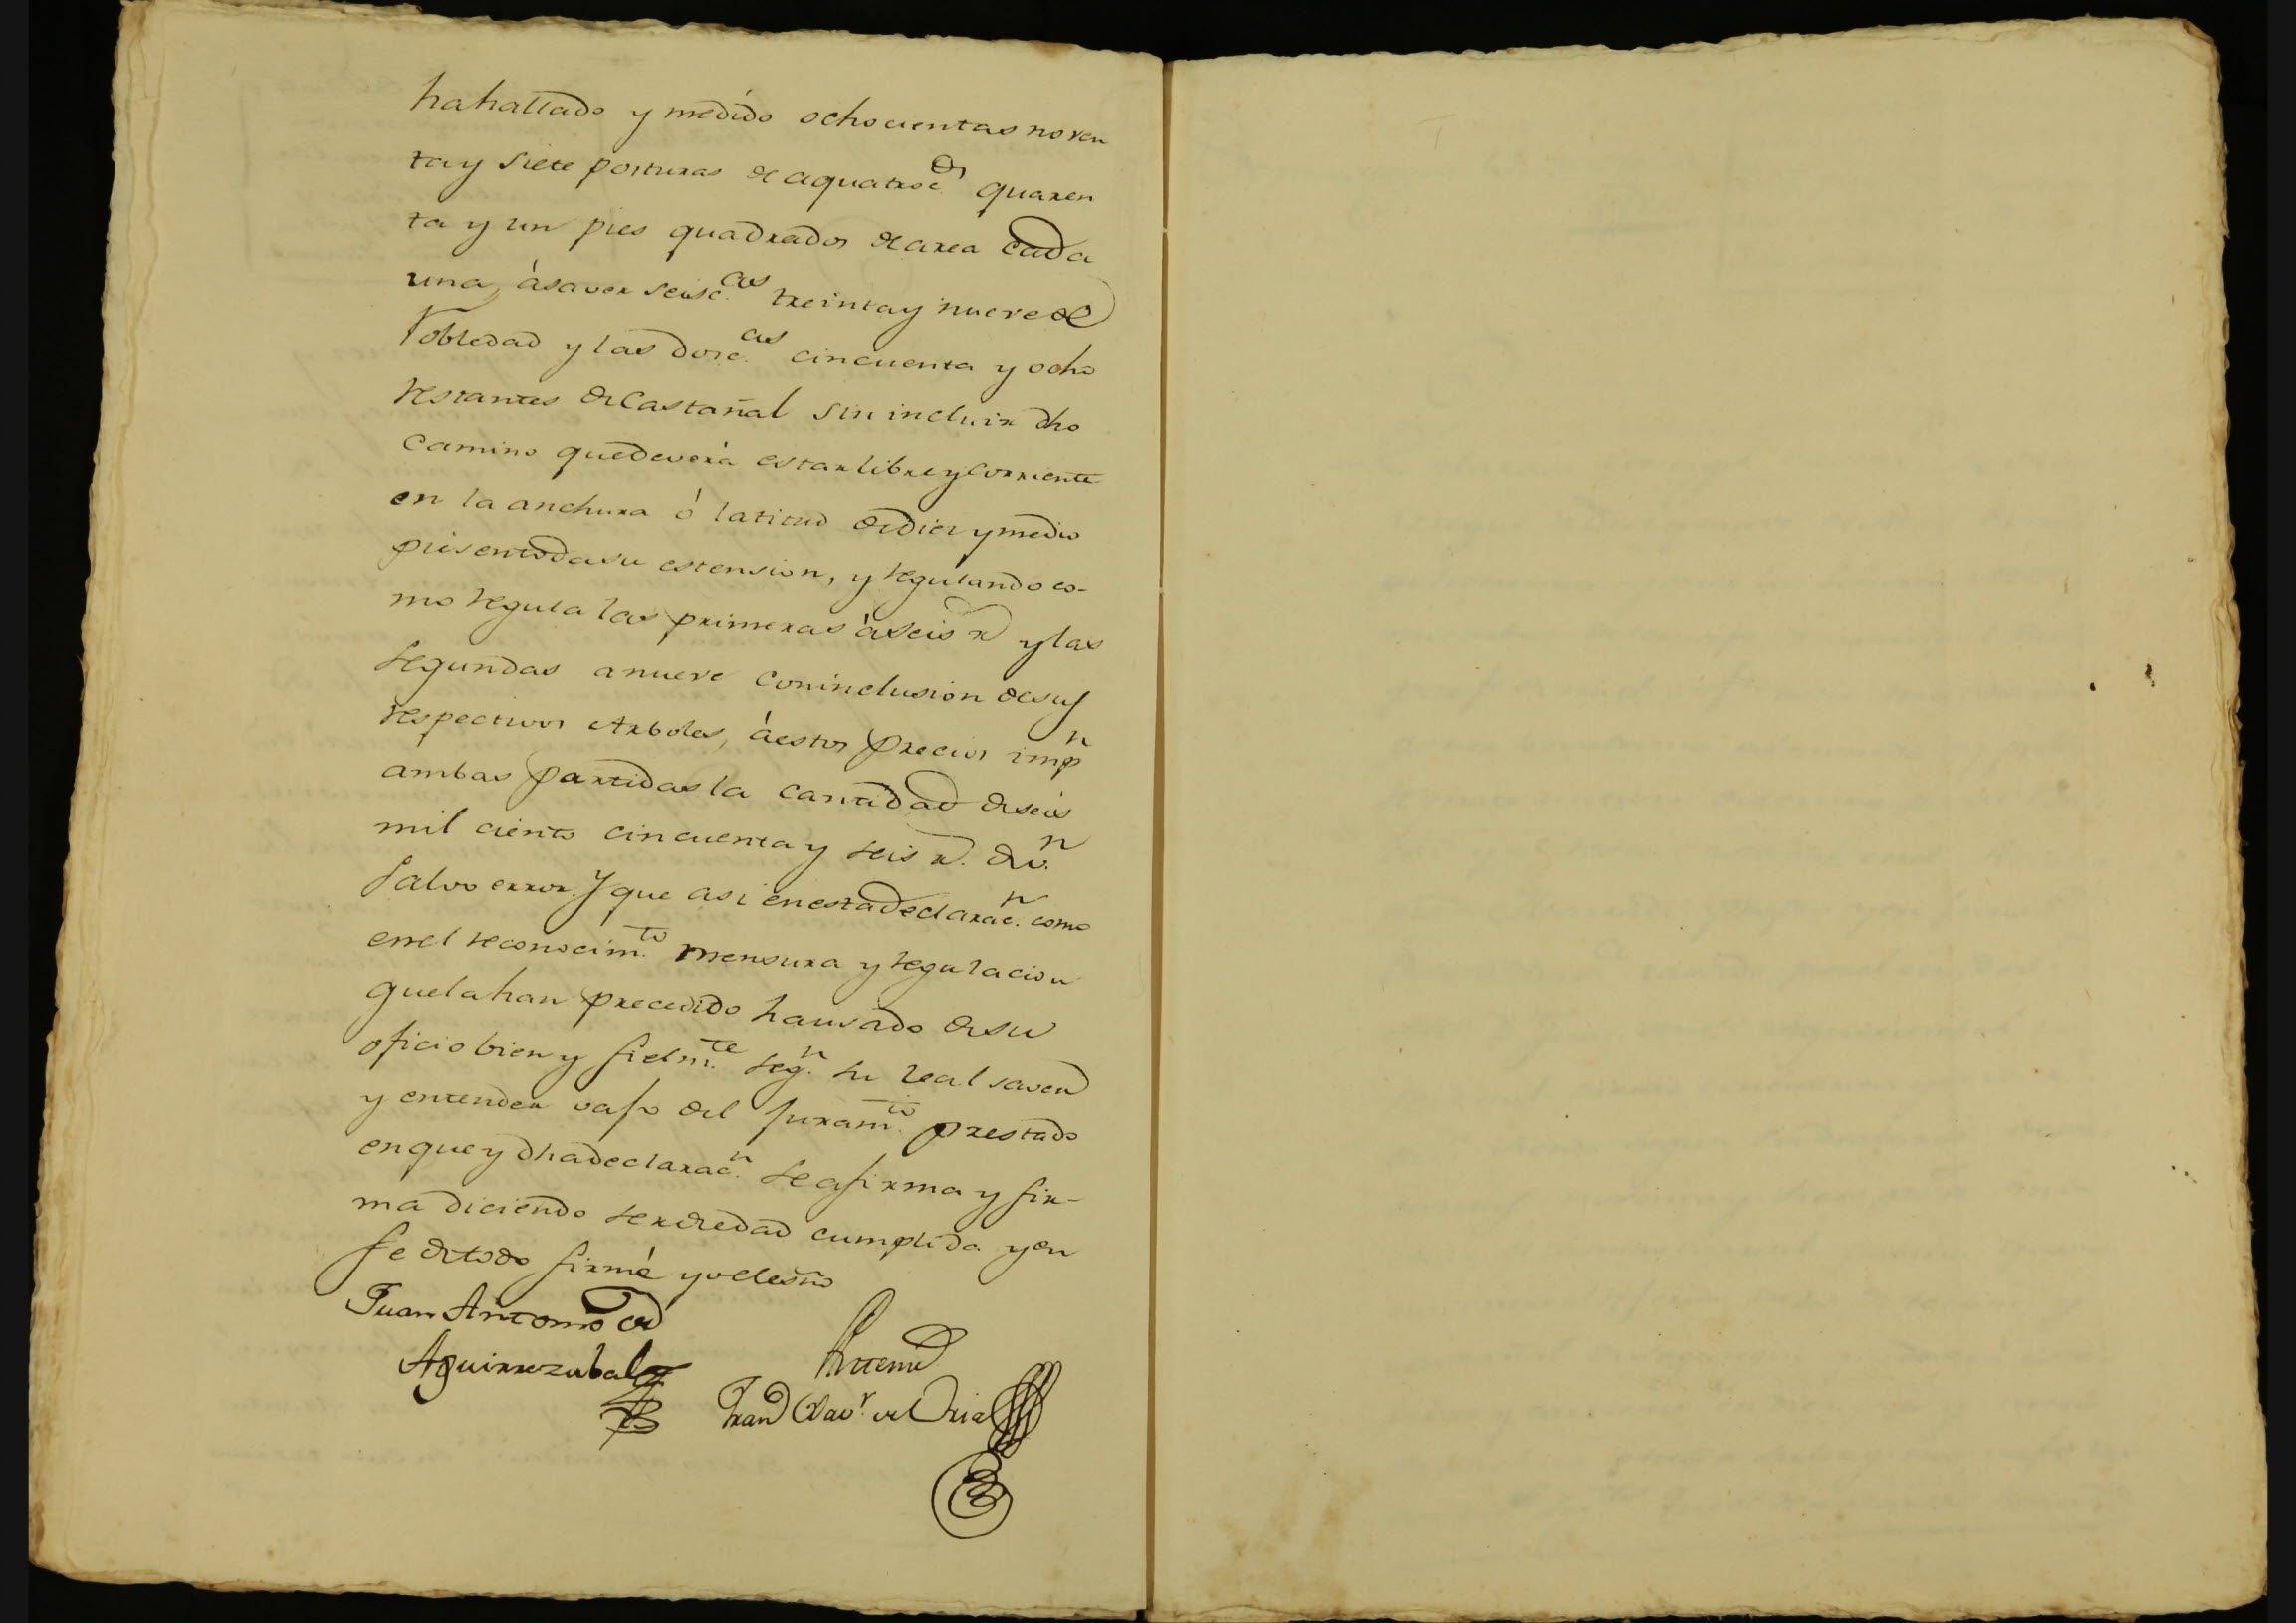 ha hallado y medido ochocientas noven
ta y siete posturas de a quatroc.os quaren
ta y un pies quadrados de area cada
una, à saver seisc.as treinta y nueve de
Robledad y las dosc.as cincuenta y ocho
restantes de Castañal sin incluir dho
Camino que deverà estar libre y corriente
en la anchura ó latitud de diez y medio
pies en toda su estension, y regulando co-
mo regula las primeras à seis r.s y las
segundas a nueve con inclusion de sus
respectivos Arboles, à estos precios imp.n
ambas partidas la cantidad de seis
mil ciento cincuenta y seis r.s de v.n
salvo error. Y que asi en esta declarac.n como
en el reconocim.to mensura y regulacion
que la han precedido ha usado de su
oficio bien y fielm.te seg.n su leal saver
y entender vajo del juram.to prestado
en que y dha declarac.n se afirma y fir-
ma diciendo ser de edad cumplida y en
fe de todo firmé yo el esño
Juan Antonio de
Aguirrezabal
Ante mi
Fran.co Xav.r de Oria